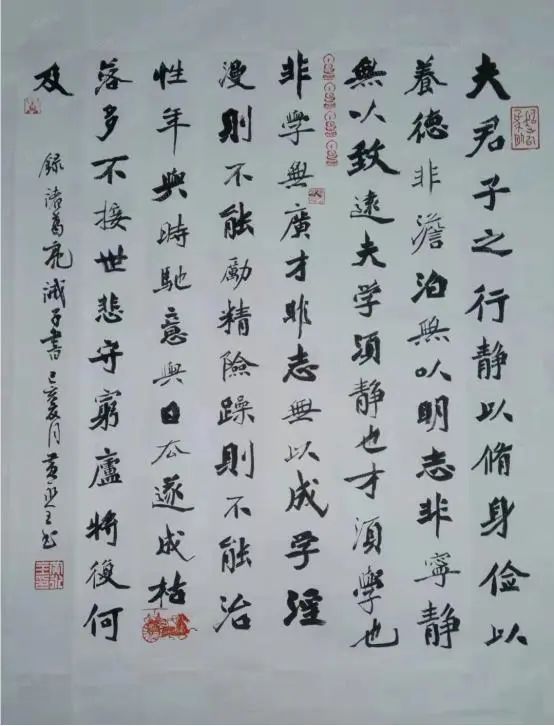 夫君子之行静以脩身俭以
養德非澹泊無以明志非寧静
無以致遠夫学須静也才須學也
非学無廣才非志無以成学淫
漫則不能勵精險躁則不能治
性年與時馳意與日去遂成枯
落多不接世悲守窮廬將復何
及
録諸葛亮誡子書己亥夏月